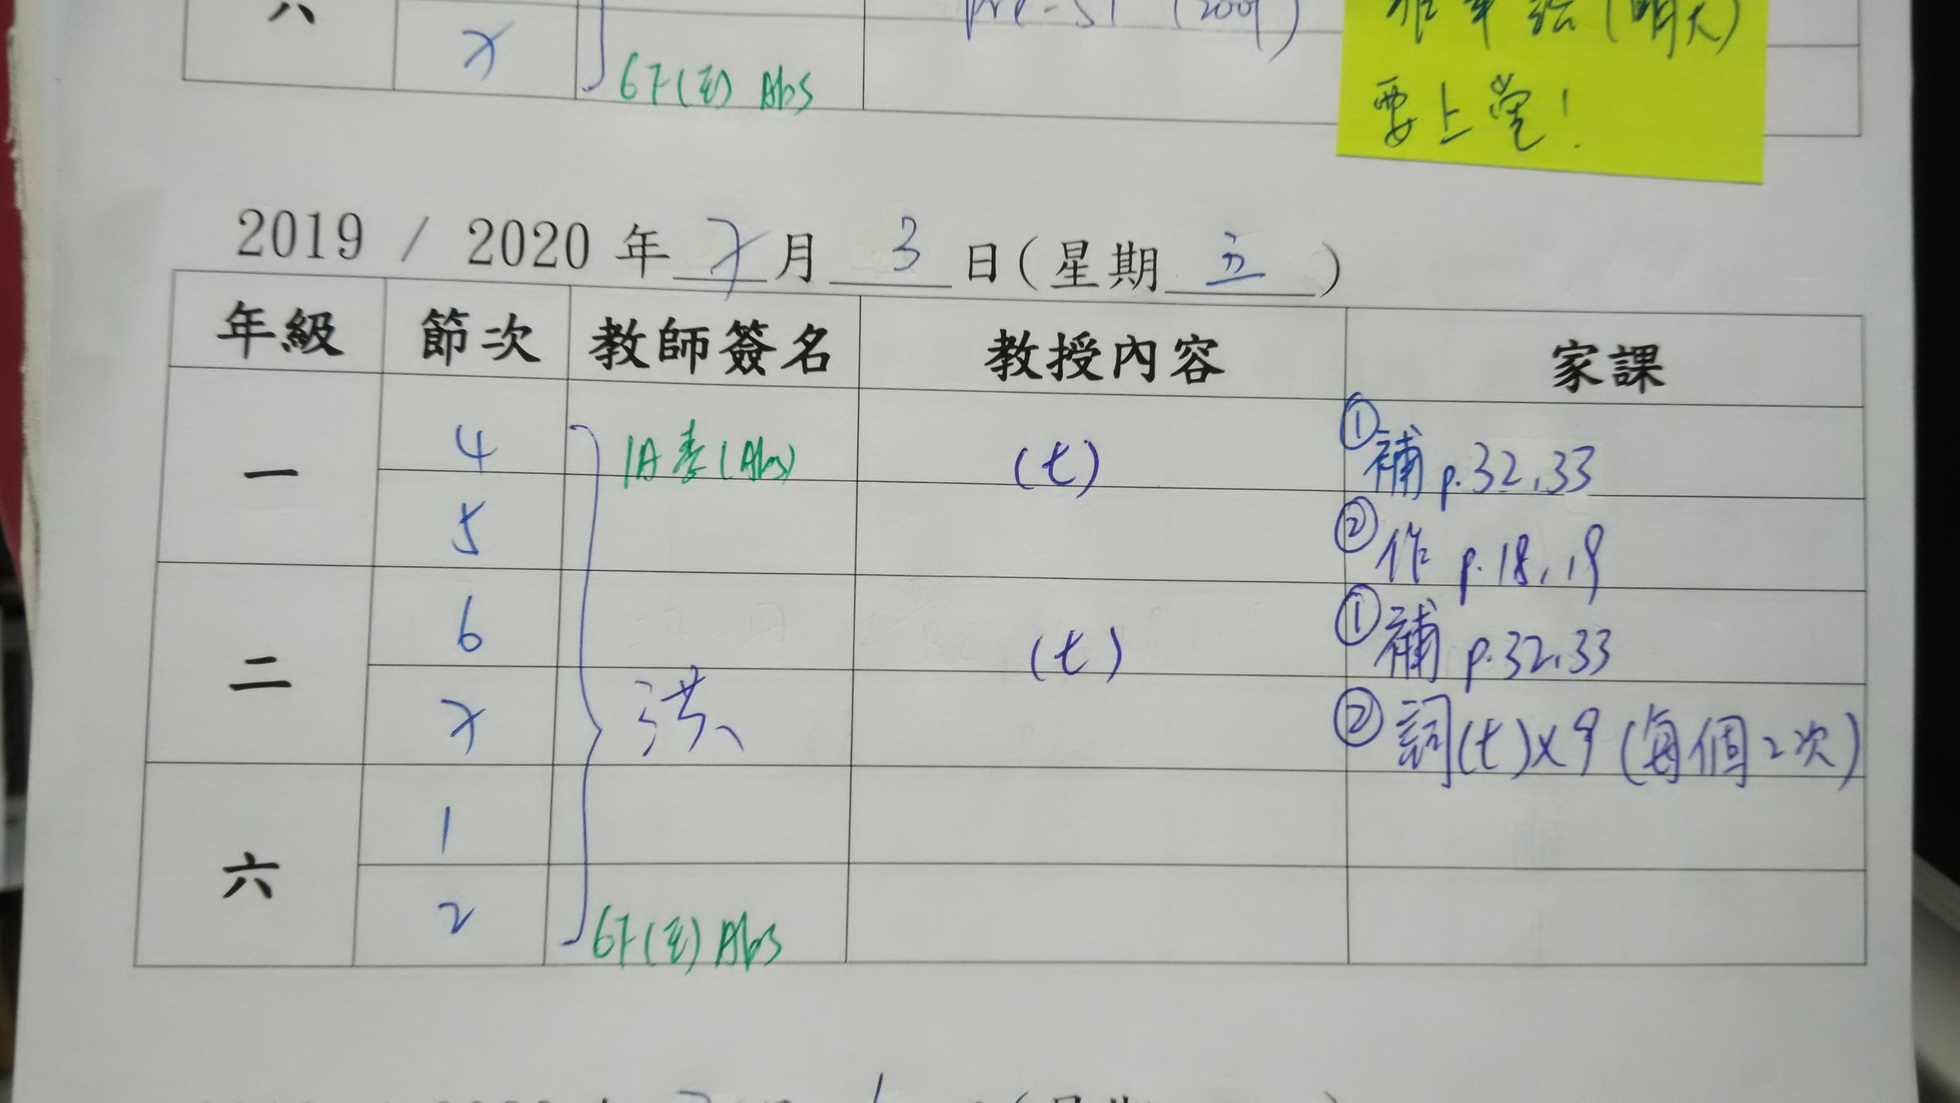 六
7
6F(
) Abs
pre-S1 (2009)
(明天)
要上堂!
2019 / 2020 年 7 月 3 日(星期 五 )
年級 節次 教師簽名 教授內容 家課
一 4 1A李(Abs) (七) ①補 p.32,33
5 ②作 p.18,19
二 6 (七) ①補 p.32,33
7 洪 ②詞(七)x9 (每個2次)
六 1
2 6F( ) Abs